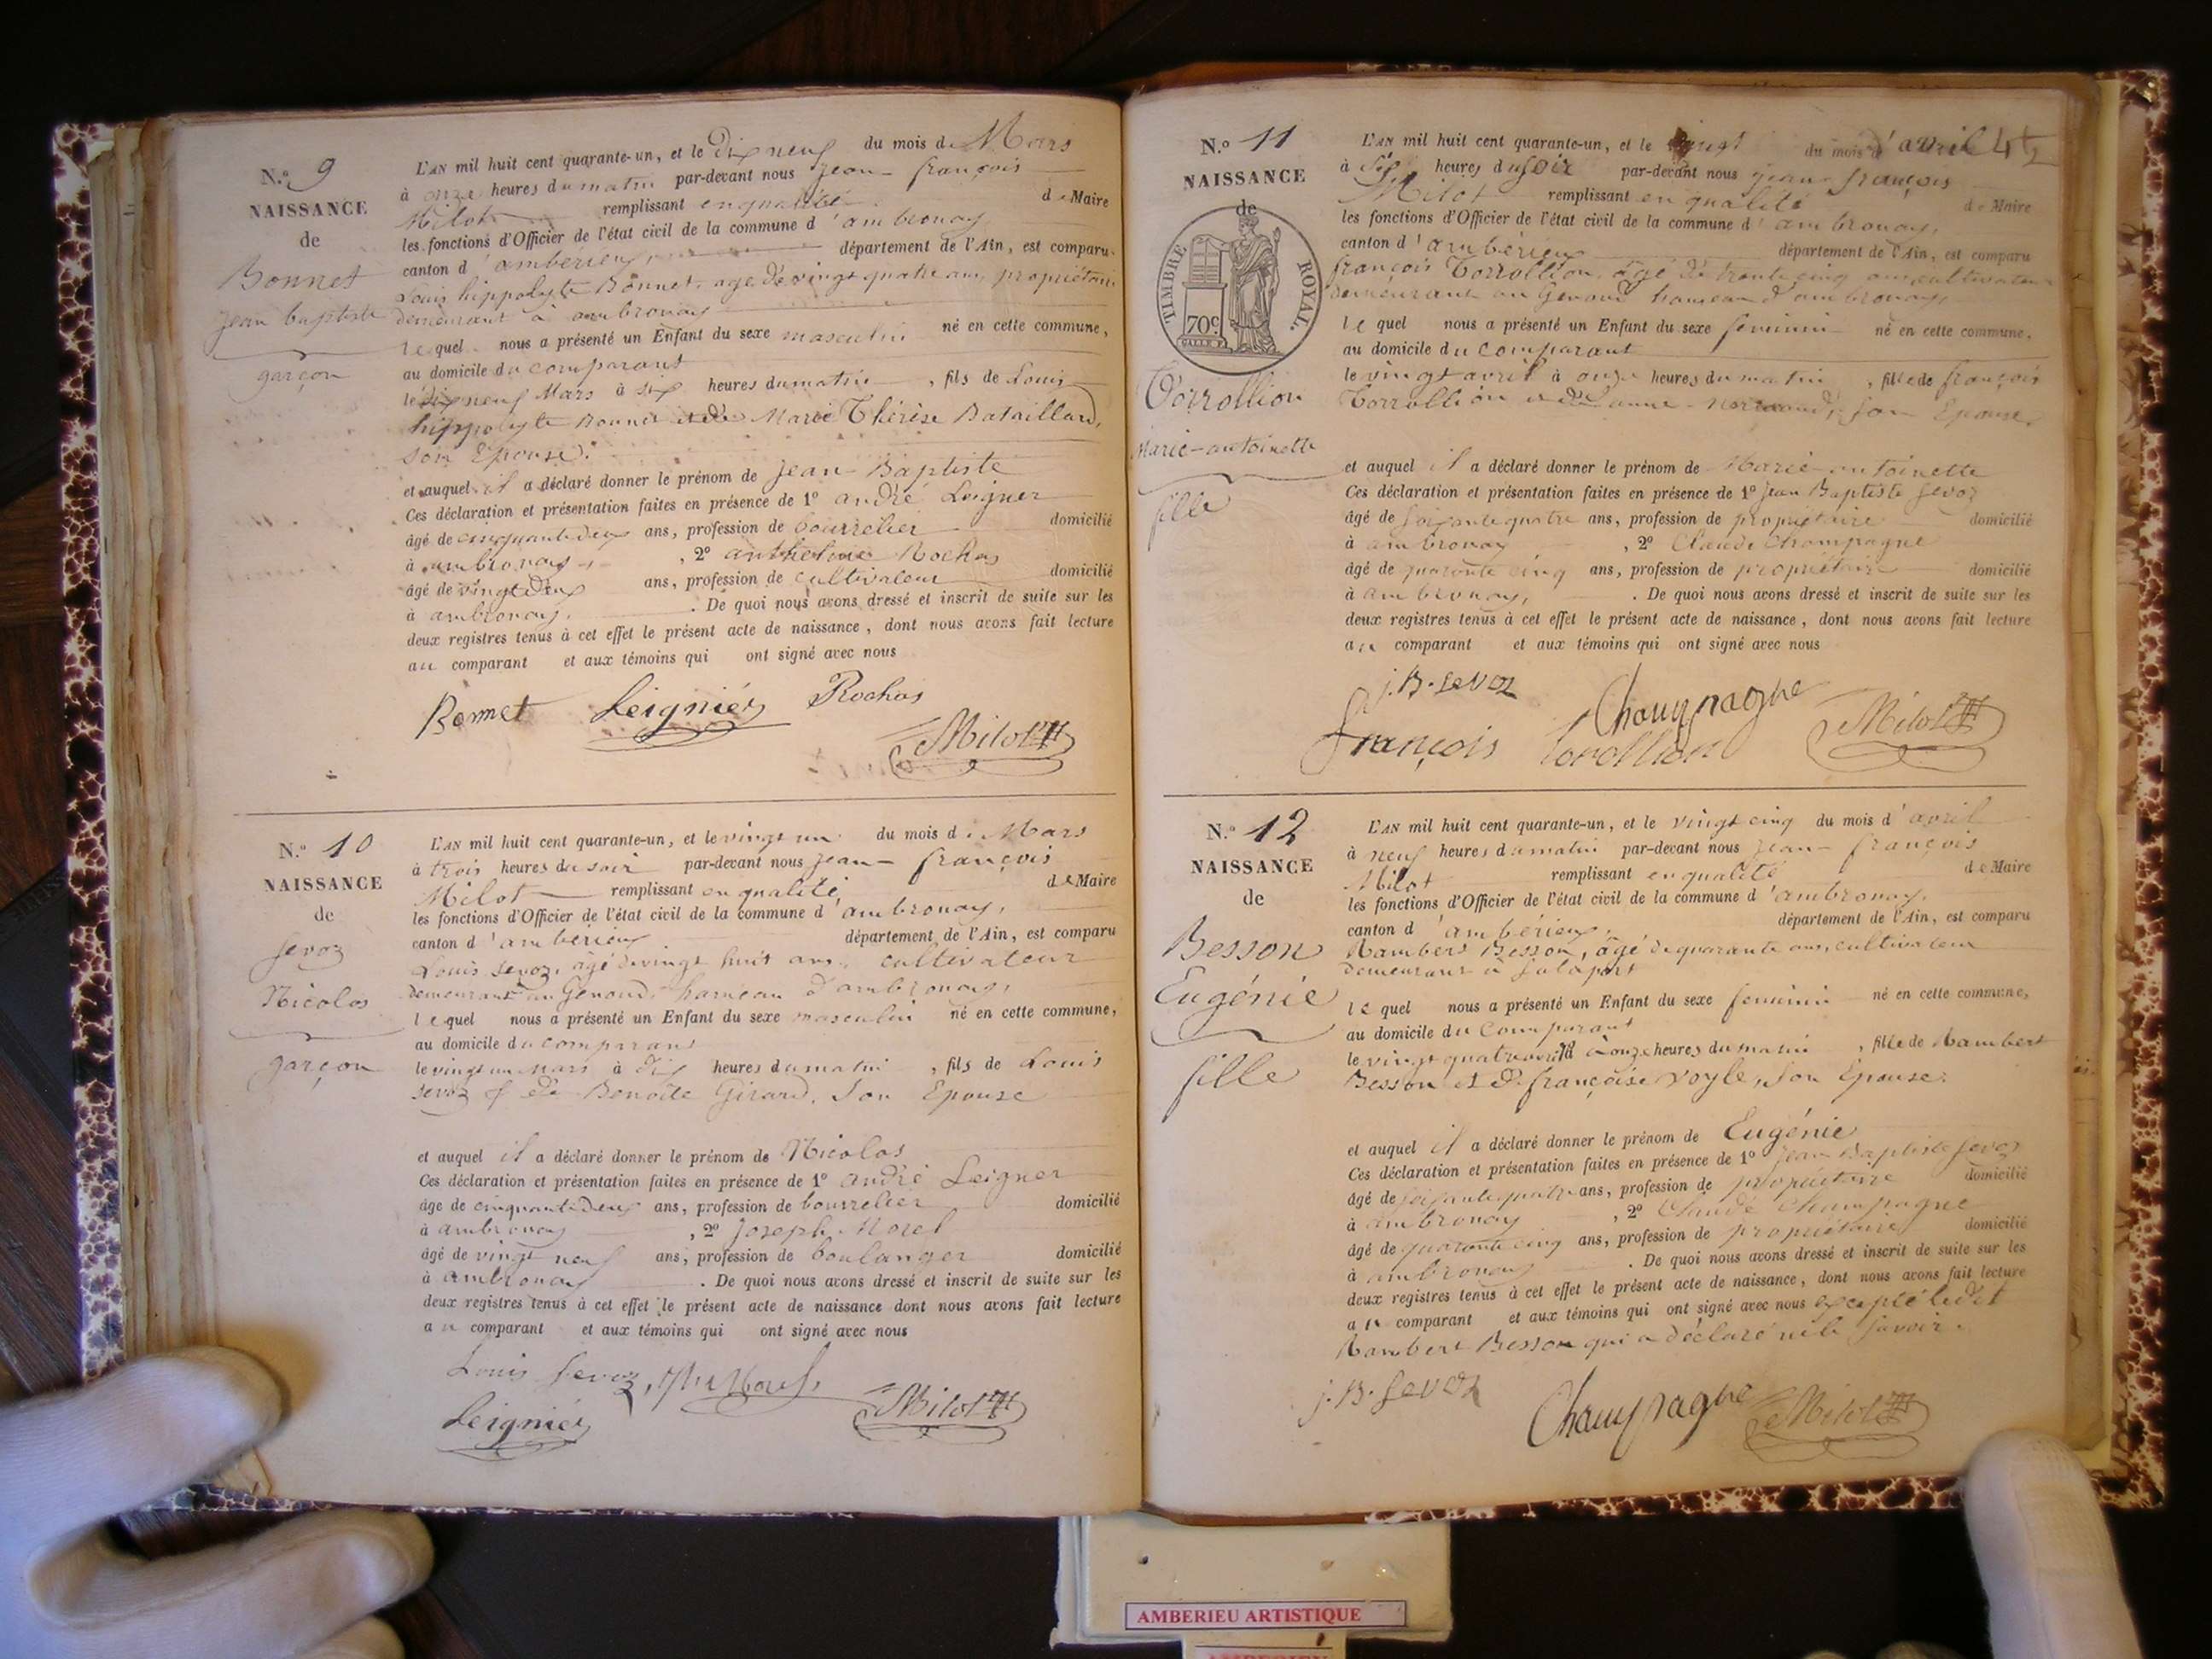 N.º 9
NAISSANCE
de
Bonnet
jean baptiste
garçon
L'AN mil huit cent quarante-un, et le dix neuf du mois de Mars
à onze heures du matin par-devant nous jean françois
Milot remplissant en qualité de Maire
les fonctions d'Officier de l'état civil de la commune d'ambronay
canton d'amberieux, département de l'Ain, est comparu
Louis hippolyte Bonnet, age de vingt quatre ans, propriétaire
demeurant à ambronay
lequel nous a présenté un Enfant du sexe masculin né en cette commune,
au domicile du comparant
le dix neuf Mars à six heures du matin, fils de Louis
hippolyte Bonnet et de Marie Thérèse Bataillard,
son Epouse.
et auquel il a déclaré donner le prénom de jean-Baptiste
Ces déclaration et présentation faites en présence de 1º andré Leigner
âgé de cinquante deux ans, profession de bourrelier domicilié
à ambronay, 2º anthelme Rochas
âgé de vingt deux ans, profession de cultivateur domicilié
à ambronay. De quoi nous avons dressé et inscrit de suite sur les
deux registres tenus à cet effet le présent acte de naissance, dont nous avons fait lecture
au comparant et aux témoins qui ont signé avec nous
Bonnet Leignier Rochas
Milot
N.º 10
NAISSANCE
de
Sevoz
Nicolas
garçon
L'AN mil huit cent quarante-un, et le vingt un du mois de Mars
à trois heures du soir par-devant nous jean françois
Milot remplissant en qualité de Maire
les fonctions d'Officier de l'état civil de la commune d'ambronay,
canton d'amberieux département de l'Ain, est comparu
Louis Sevoz, âgé de vingt huit ans, cultivateur
demeurant au Genoud, hameau d'ambronay,
lequel nous a présenté un Enfant du sexe masculin né en cette commune,
au domicile du comparant
le vingt un mars à dix heures du matin, fils de Louis
Sevoz & de Benoîte Girard, son Epouse
et auquel il a déclaré donner le prénom de Nicolas
Ces déclaration et présentation faites en présence de 1º andré Leigner
âgé de cinquante deux ans, profession de bourrelier domicilié
à ambronay, 2º joseph Morel
âgé de vingt neuf ans, profession de boulanger domicilié
à ambronay. De quoi nous avons dressé et inscrit de suite sur les
deux registres tenus à cet effet le présent acte de naissance dont nous avons fait lecture
au comparant et aux témoins qui ont signé avec nous
Louis Sevoz,
Leignier Milot
N.º 11
NAISSANCE
de
TIMBRE ROYAL.
70c.
Torrollion
Marie-antoinette
fille
L'AN mil huit cent quarante-un, et le vingt du mois d'avril
à six heures du soir par-devant nous jean françois
Milot remplissant en qualité de Maire
les fonctions d'Officier de l'état civil de la commune d'ambronay,
canton d'ambérieux département de l'Ain, est comparu
françois Torrollion, âgé de trente cinq ans, cultivateur
demeurant au Genoud hameau d'ambronay,
lequel nous a présenté un Enfant du sexe feminin né en cette commune,
au domicile du comparant
le vingt avril à onze heures du matin, fille de françois
Torrollion et de anne son Epouse.
et auquel il a déclaré donner le prénom de Marie-antoinette
Ces déclaration et présentation faites en présence de 1º jean Baptiste Sevoz
âgé de soixante quatre ans, profession de propriétaire domicilié
à ambronay, 2º Claude Champagne
âgé de quarante cinq ans, profession de propriétaire domicilié
à ambronay,. De quoi nous avons dressé et inscrit de suite sur les
deux registres tenus à cet effet le présent acte de naissance, dont nous avons fait lecture
au comparant et aux témoins qui ont signé avec nous
j.B. Sevoz Champagne
françois torollion Milot
N.º 12
NAISSANCE
de
Besson
Eugénie
fille
L'AN mil huit cent quarante-un, et le vingt cinq du mois d'avril
à neuf heures du matin par-devant nous jean françois
Milot remplissant en qualité de Maire
les fonctions d'Officier de l'état civil de la commune d'ambronay,
canton d'ambérieux, département de l'Ain, est comparu
Rambert Besson, âgé de quarante ans, cultivateur
demeurant à
lequel nous a présenté un Enfant du sexe feminin né en cette commune,
au domicile du Comparant
le vingt quatre avril à onze heures du matin, fille de Rambert
Besson et de françoise Voyle, son Epouse.
et auquel il a déclaré donner le prénom de Eugénie
Ces déclaration et présentation faites en présence de 1º jean Baptiste Sevoz
âgé de soixante quatre ans, profession de propriétaire domicilié
à ambronay, 2º Claude Champagne
âgé de quarante cinq ans, profession de propriétaire domicilié
à ambronay. De quoi nous avons dressé et inscrit de suite sur les
deux registres tenus à cet effet le présent acte de naissance, dont nous avons fait lecture
au comparant et aux témoins qui ont signé avec nous excepté ledit
Rambert Besson qui a déclaré ne le savoir.
j.B. Sevoz Champagne Milot
AMBERIEU ARTISTIQUE